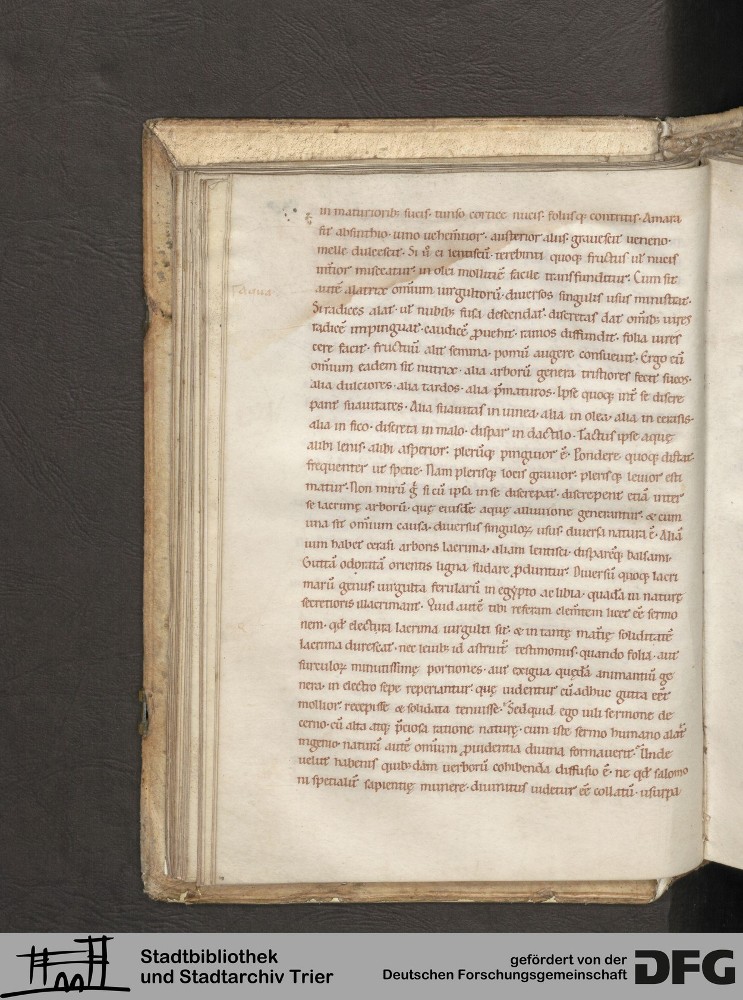 in maturiorib; sucis. tunso cortice nucis. foliisq; contritis. Amara
fit absinthio. uino uehem̄tior. austerior aliis. grauescit ueneno.
melle dulcescit. Si ū ei lentisci. terebinti quoq; fructus ut̄ nucis
int̄ior misceatur. in olei molliciē facile transfunditur. Cum sit
autē alatrix om̄ium uirgultorū. diuersos singulis usus ministrat.
Faqua
Si radices alat. ut̄ nubib; fusa descendat. discretas dat om̄ib; uires
radicē impinguat. caudicē ꝓuehit. ramos diffundit. folia uires
cere facit. fructuū alit semina. pomū augere consueuit. Ergo cū
om̄ium eadem sit nutrix. alia arborū genera tristiores fecit sucos.
alia dulciores. alia tardos. alia p̄maturos. Ipse quoq; int̄ se discre
pant suauitates. Alia suauitas in uinea. alia in olea. alia in cerasis.
alia in fico. discreta in malo. dispar in dactilo. Tactus ipse aquę
alibi lenis. alibi asperior. plerūq; pinguior ē. Pondere quoq; distat
frequenter ut specie. Nam plerisq; locis grauior. plerisq; leuior esti
matur. Non mirū g̊ si cū ipsa in se discrepat. discrepent etiā inter
se lacrimę arborū. quę eiusdē aquę alluuione generantur. & cum
una sit om̄ium causa. diuersus singuloꝝ usus. diuersa natura ē. Aliā
uim habet cerasi arboris lacrima. aliam lentisci. disparēq; balsami.
Guttā odoratā orientis ligna sudare ꝓduntur. Diuersū quoq; lacri
marū genus. uirgulta ferularū in egypto ac libia. quadā in naturę
secretioris illacrimant. Quid autē tibi referam elem̄tem licet eē sermo
nem. qd̄ electura lacrima uirgulti sit. & in tantę mat̄ię soliditatē
lacrima durescat. nec leuib; id astruit̄ testimoniis. quando folia. aut
surculoꝝ minutissimę portiones. aut exigua quędā animantiū ge
nera. in electro sepe reperiantur. quę uidentur cū adhuc gutta eēt
mollior. recepisse & solidata tenuisse. Sed quid ego uili sermone de
cerno. cū alta atq; p̄ciosa ratione naturę. cum iste sermo humano alat̄
ingenio. naturā autē om̄ium ꝓuidentia diuina formauerit. Unde
uelut habenis quib;dam uerborū cohibenda diffusio ē. ne qd̄ salomo
ni specialit̄ sapientię munere. diuinitus uidetur eē collatū. usurpa
Stadtbibliothek
und Stadtarchiv Trier
gefördert von der
Deutschen Forschungsgemeinschaft
DFG